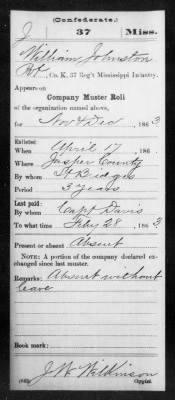 (Confederate.)
J 37 Miss.
William Johnston
Co. K, 37 Reg't Mississippi Infantry.
Appears on
Company Muster Roll
of the organization named above,
for Nov & Dec, 1863
Enlisted:
When April 17, 186
Where Jasper County
By whom Bridges
Period 3 years
Last paid:
By whom Capt Davis
To what time Feby 28, 1863
Present or absent Absent
NOTE: A portion of the company declared ex-
changed since last muster.
Remarks: Absent without
leave
Book mark:
J W Wilkinson
(642) Copyist.